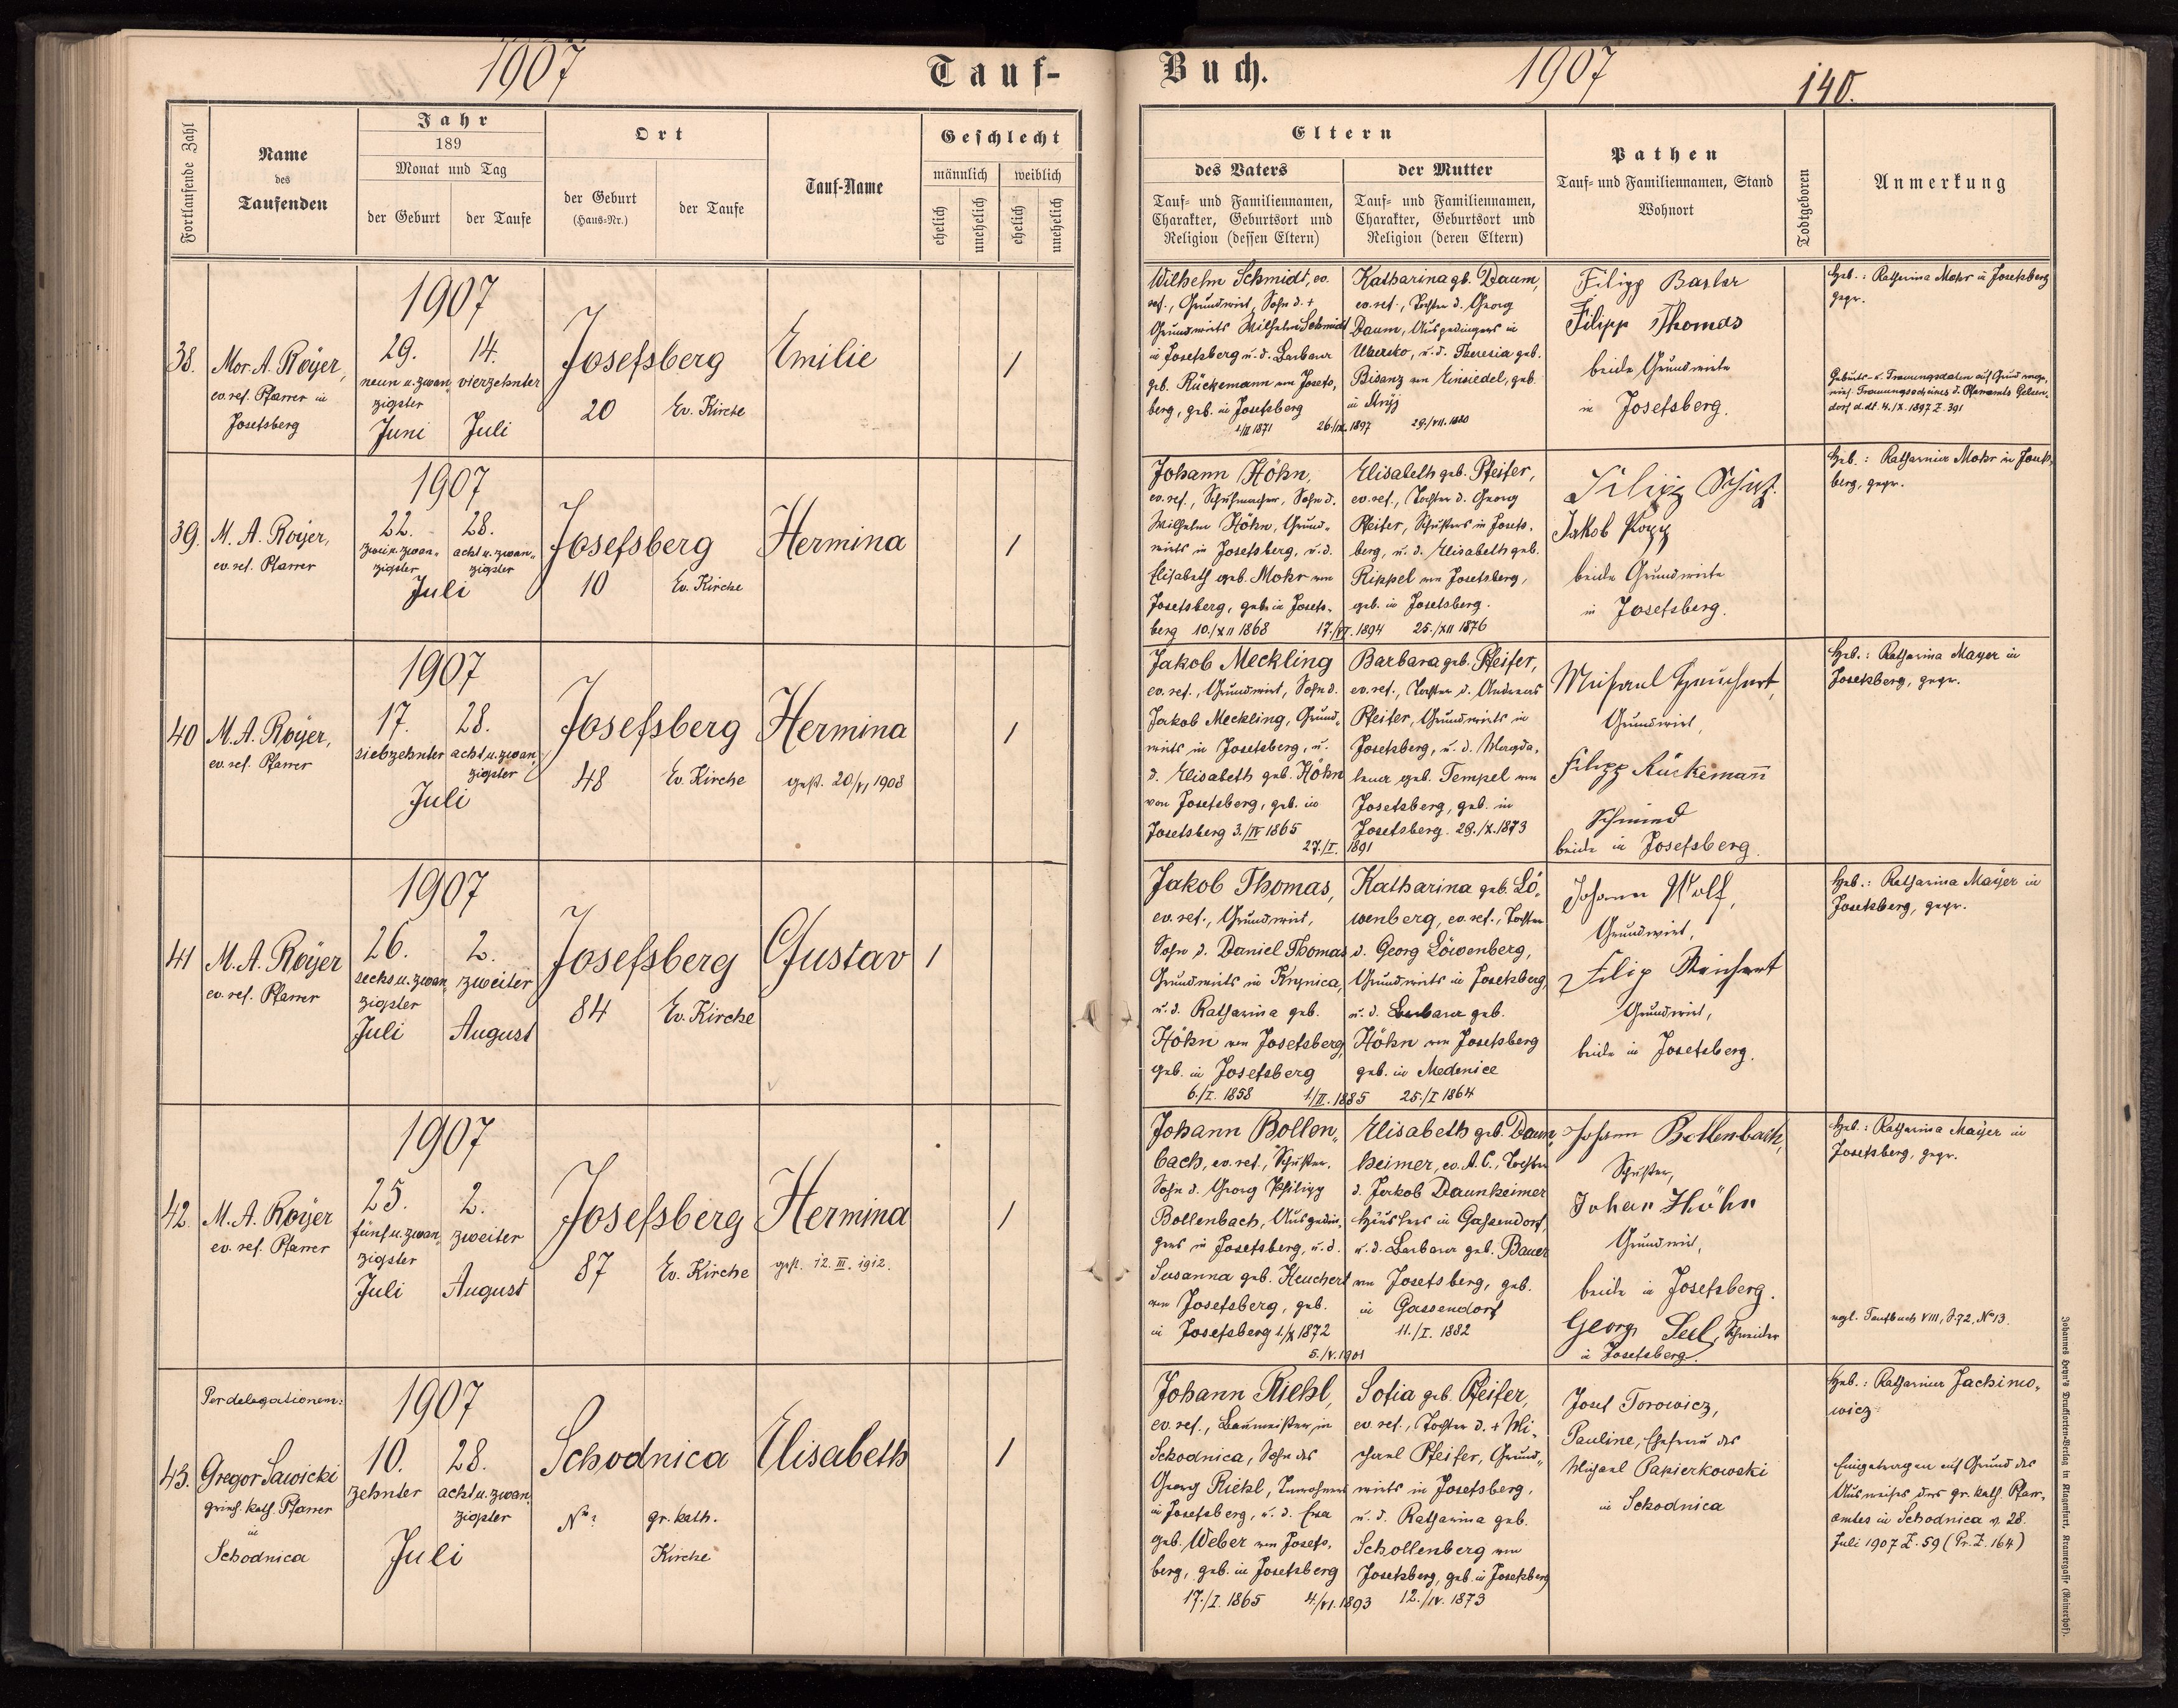 1907
Tauf-
Fortlaufende Zahl
Name
des
Taufenden
Jahr
189
Monat und Tag
der Geburt
der Taufe
Ort
der Geburt
(Haus=Nr.)
der Taufe
Tauf=Name
Geschlecht
männlich
weiblich
ehelich
unehelich
ehelich
unehelich
1907
38.
Mor. A. Royer,
ev. ref. Pfarrer in
Josefsberg
29.
neun u. zwan
zigster
Juni
14.
vierzehnter
Juli
Josefsberg
20
Ev. Kirche
Emilie
1
1907
39.
M. A. Royer,
ev. ref. Pfarrer
22.
zwei u. zwan-
zigster
28.
acht u. zwan-
zigster
Juli
Josefsberg
10
Ev. Kirche
Hermina
1
1907
40
M. A. Royer,
ev. ref. Pfarrer
17.
siebzehnter
28.
acht u. zwan
zigster
Juli
Josefsberg
48
Ev. Kirche
Hermina
gest. 20/VI 1908
1
1907
41
M. A. Royer
ev. ref. Pfarrer
26.
sechs u. zwan
zigster
Juli
2.
zweiter
August
Josefsberg
84
Ev. Kirche
Gustav
1
1907
42.
M. A. Royer
ev. ref. Pfarrer
25.
fünf u. zwan
zigster
Juli
2.
zweiter
August
Josefsberg
87
Ev. Kirche
Hermina
gest. 12. III. 1912.
1
Per delegationem:
1907
43.
Gregor Sawicki
griech. kath. Pfarrer
in
Schodnica
10.
zehnter
28.
acht u. zwan
zigster
Juli
Schodnica
No ?
gr. kath.
Kirche
Elisabeth
1
Buch.
1907
140.
Eltern
des Vaters
Tauf= und Familiennamen,
Charakter, Geburtsort und
Religion (dessen Eltern)
der Mutter
Tauf= und Familiennamen,
Charakter, Geburtsort und
Religion (deren Eltern)
Pathen
Tauf= und Familiennamen, Stand
Wohnort
Todtgeboren
Anmerkung
Wilhelm Schmidt, ev.
ref., Grundwirt, Sohn d. +
Grundwirts Wilhelm Schmidt
in Josefsberg u. d. Barbara
geb. Rückemann von Josefs,
berg, geb. in Josefsberg
1871
26./IX. 1897
Katharina gb. Daum,
ev. ref., Tochter d. Georg
Daum, Ausgedingers in
Ubersko, u. d. Theresia geb.
Bisanz von Einsiedel, geb.
in Stryj
29./VII. 1880
Filipp Basler
Filipp Thomas
beide Grundwirte
in Josefsberg.
Heb.: Katharina Mohr in Josefsberg
gepr.
Geburts- u. Trauungsdaten auf Grund
Trauungsscheines d. Pfarramts Gelsen,
dorf d. dt. 4./X. 1897 Z. 391
Johann Höhn,
ev. ref., Schuhmacher, Sohn d.
Wilhelm Höhn, Grund-
wirts in Josefsberg, u. d.
Elisabeth geb. Mohr von
Josefsberg, geb. in Josefs-
berg 10./XII 1868
17./VI. 1894
Elisabeth geb. Pfeifer,
ev. ref., Tochter d. Georg
Pfeifer, Schusters in Josefs-
berg, u. d. Elisabeth geb.
Rippel von Josefsberg,
geb. in Josefsberg.
25./XII 1876
Filipp Schuf.
Jakob Popp
beide Grundwirte
in Josefsberg.
Heb.: Katharina Mohr in Josefs-
berg, gepr.
Jakob Meckling
ev. ref., Grundwirt, Sohn d.
Jakob Meckling, Grund-
wirts in Josefsberg, u.
d. Elisabeth geb. Höhn
von Josefsberg, geb. in
Josefsberg 3./IV 1865
27./I. 1891
Barbara geb. Pfeifer,
ev. ref., Tochter d. Andreas
Pfeifer, Grundwirts in
Josefsberg, u. d. Magda-
lena geb. Tempel von
Josefsberg, geb. in
Josefsberg. 29./X. 1873
Michael Heuchert,
Grundwirt,
Filipp Rückemann
Schmied
beide in Josefsberg.
Heb.: Katharina Mayer in
Josefsberg, gepr.
Jakob Thomas,
ev. ref., Grundwirt,
Sohn d. Daniel Thomas
Grundwirts in Krynica,
u. d. Katharina geb.
Höhn von Josefsberg,
geb. in Josefsberg
6./I. 1858
1/II. 1885
Katharina geb. Lö-
wenberg, ev. ref., Tochter
d. Georg Löwenberg,
Grundwirts in Josefsberg,
u. d. Barbara geb.
Höhn von Josefsberg
geb. in Medenice
25./I 1864
Johann Wolf,
Grundwirt,
Filip Reichert
Grundwirt,
beide in Josefsberg.
Heb.: Katharina Mayer in
Josefsberg, gepr.
Johann Bollen-
bach, ev. ref., Schuster.
Sohn d. Georg Philipp
Bollenbach, Ausgedin-
gers in Josefsberg, u. d.
Susanna geb. Heuchert
von Josefsberg, geb.
in Josefsberg 1./X 1872
5./V. 1901
Elisabeth geb. Daun-
heimer, ev. A. C., Tochter
d. Jakob Daunheimer
Häuslers in Gassendorf,
u. d. Barbara geb. Bauer
von Josefsberg, geb.
in Gassendorf
11./I. 1882
Johann Bollenbach,
Schuster,
Johan Höhn
Grundwirt,
beide in Josefsberg.
Georg Seel, Schneider
in Josefsberg.
Heb.: Katharina Mayer in
Josefsberg, gepr.
vgl. Taufbuch VIII, S. 72, No 13.
Johann Riehl,
ev. ref., Baumeister in
Schodnica, Sohn des
Georg Riehl, Inwohners
in Josefsberg, u. d. Eva
geb. Weber von Josefs-
berg, geb. in Josefsberg
17./I. 1865
4./VI. 1893
Sofia geb. Pfeifer,
ev. ref., Tochter d. + Mi-
chael Pfeifer, Grund-
wirts in Josefsberg,
u. d. Katharina geb.
Schollenberg von
Josefsberg, geb. in Josefsberg
12./IV. 1873
Josef Torowicz,
Pauline, Ehefrau des
Michael Papierkowski
in Schodnica
Heb.: Katharina Jachimo-
wicz
Eingetragen auf Grund des
Ausweises des gr. kath. Pfarr-
amtes in Schodnica v. 28.
Juli 1907 Z. 59 (Pr. Z. 164)
Johannes Heyn's Drucksorten-Verlag in Klagenfurt, Kramergasse (Rainerhof).